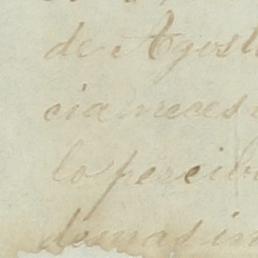 de Agosto
cia neces
lo percib
demas in